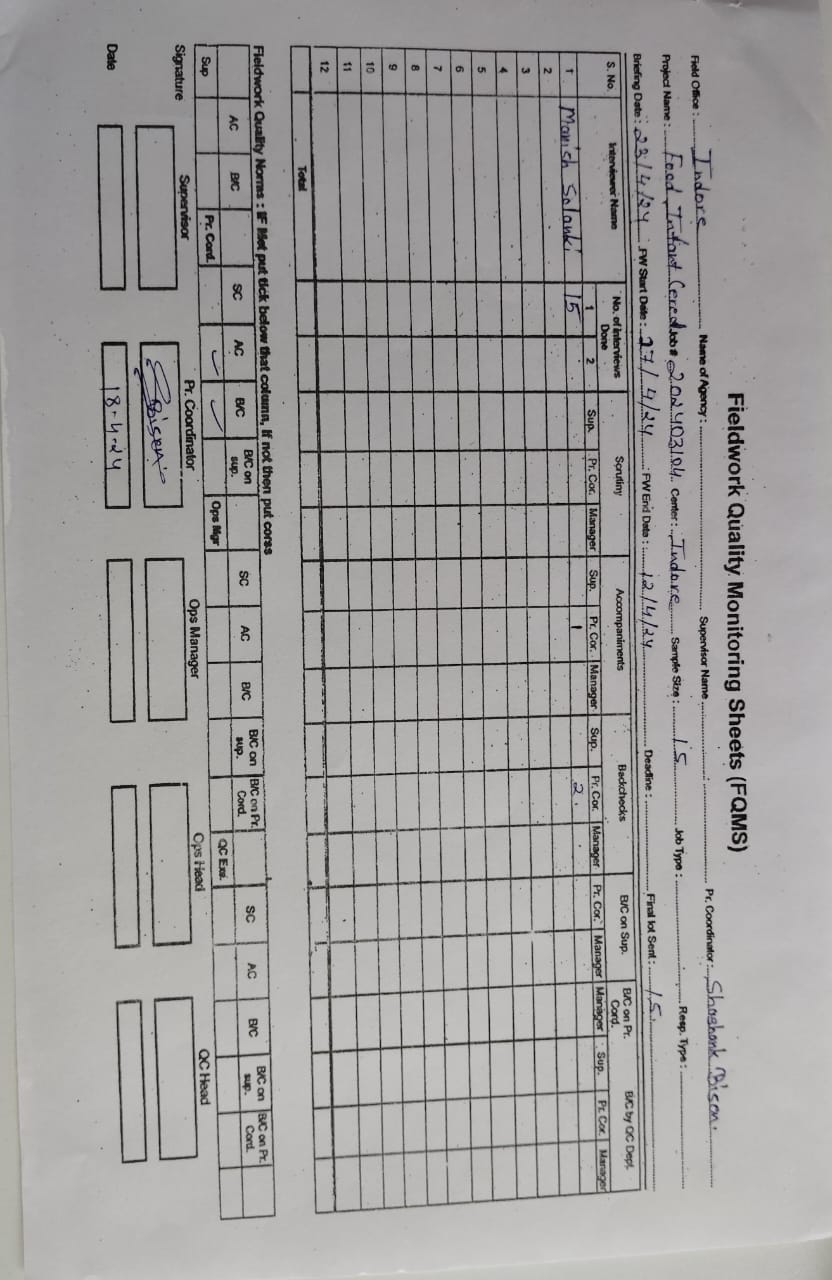 Fieldwork Quality Monitoring Sheets (FQMS)
Field Office : Indore Name of Agency : Supervisor Name Pr. Coordinator : Shashank Bisen.
Project Name : Food Infant Cereal Job # 202403104 Center : Indore Sample Size : 15 Job Type : Resp. Type :
Briefing Date : 23/4/24 FW Start Date : 27/4/24 FW End Date : 12/4/24 Deadline : Final lot Sent : 15.
S. No. Interviewer Name No. of Interviews Done Scrutiny Accompaniments Backchecks B/C on Sup. B/C on Pr. Cord. B/C by QC Dept.
1 2 Sup. Pr. Cor. Manager Sup. Pr. Cor. Manager Sup. Pr. Cor. Manager Pr. Cor. Manager Manager Sup. Pr. Cor. Manager
1 Manish Solanki 15 1 2.
2
3
4
5
6
7
8
9
10
11
12
Total
Fieldwork Quality Norms : IF Met put tick below that column, If not then put corss
AC B/C SC AC B/C B/C on sup. SC AC B/C B/C on sup. B/C on Pr. Cord. SC AC B/C B/C on sup. B/C on Pr. Cord.
Sup Pr. Cord. ✓ ✓ Ops Mgr QC Exe.
Supervisor Pr. Coordinator Ops Manager Ops Head QC Head
Signature SBisen
Date 18-4-24